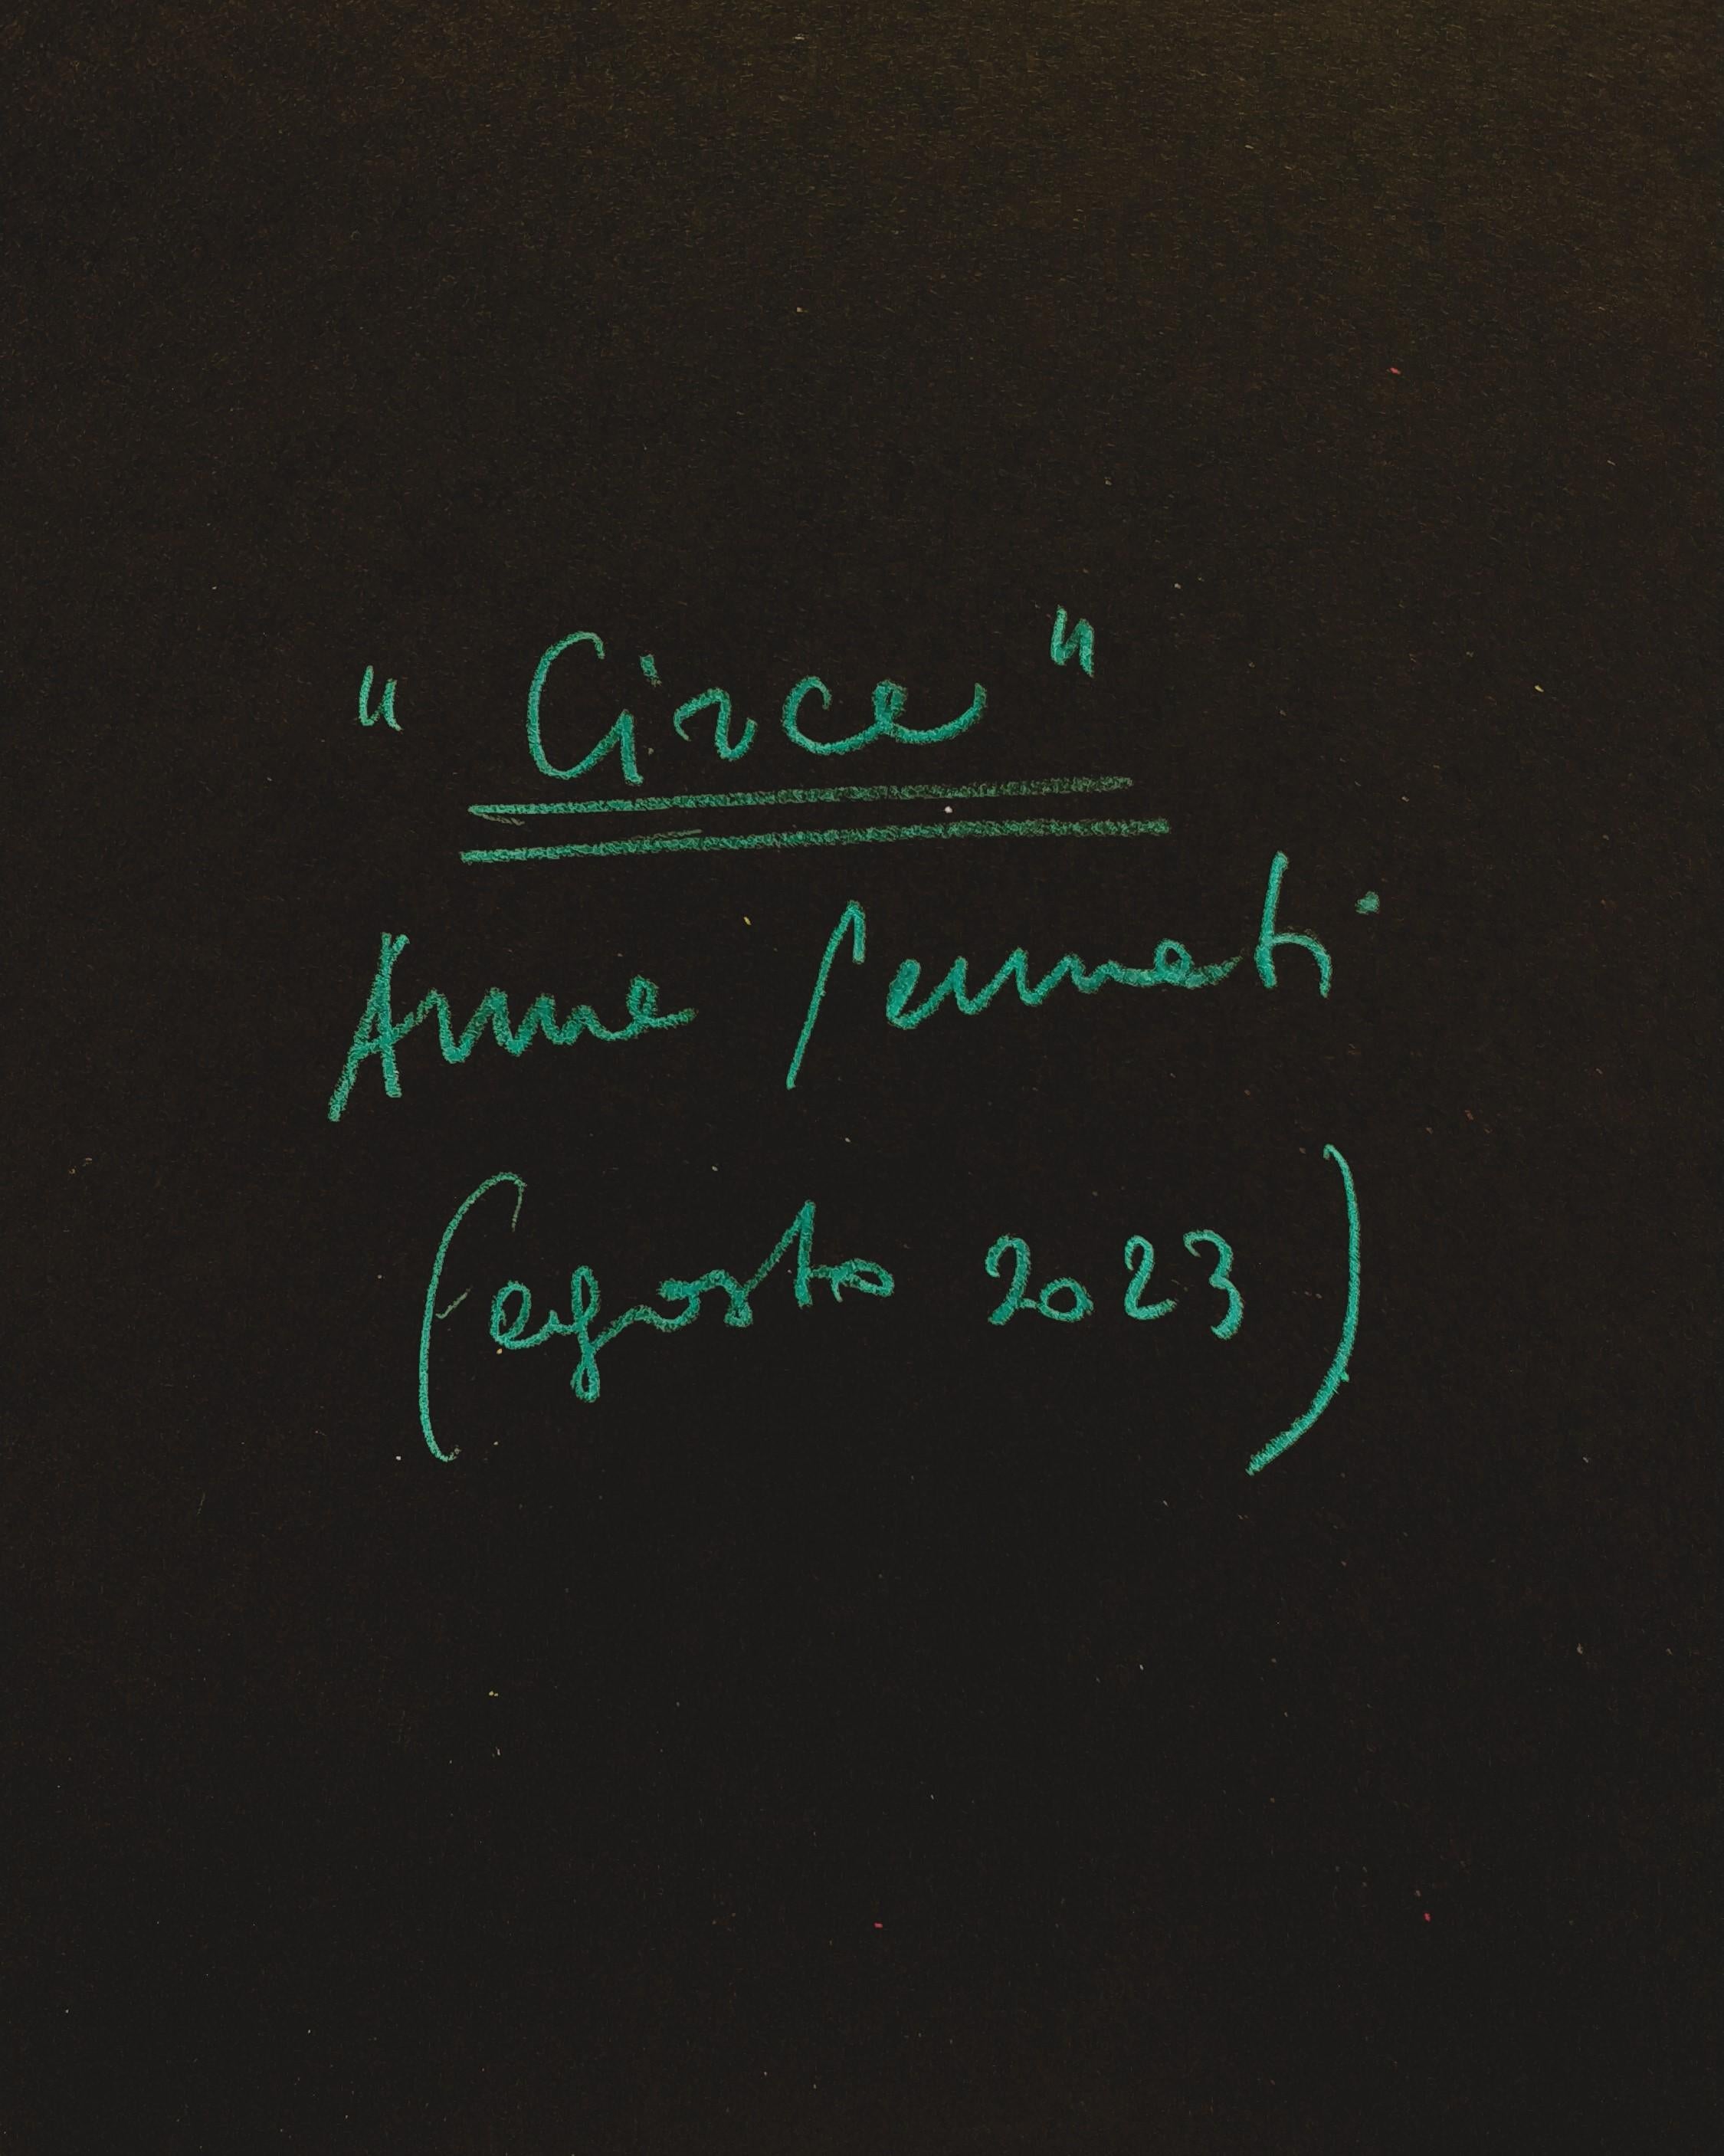 " Circe "
Anna
(agosto 2023)